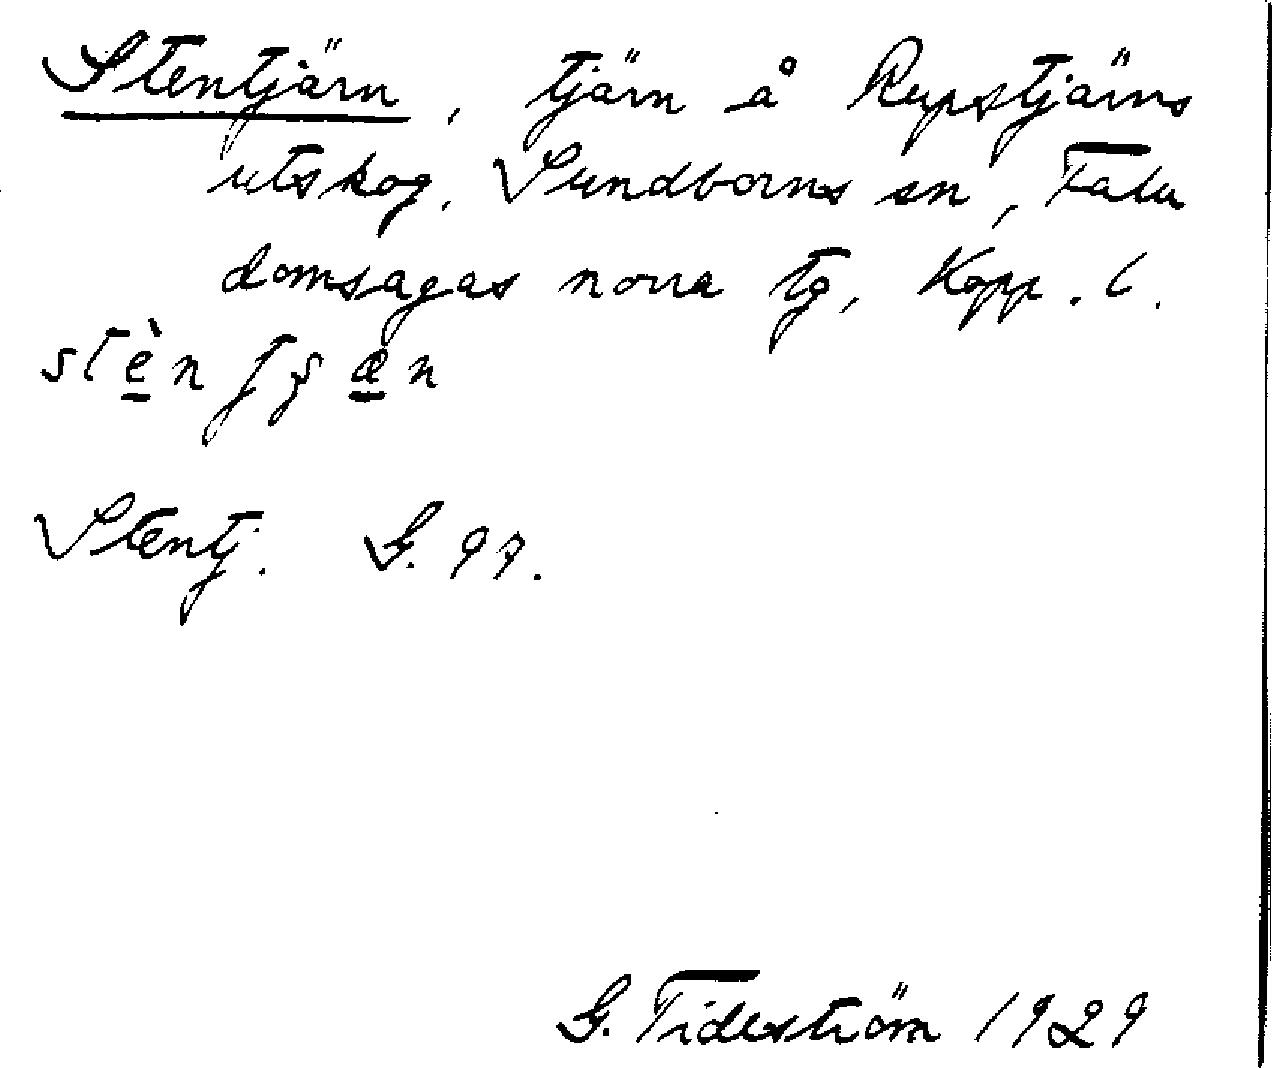 Stentjärn, tjärn å Repstjärns
utskog, Sundborns sn, Falu
domsagas norra tg, Kopp. l.
Stentj. G. 97.
G. Tideström 1929